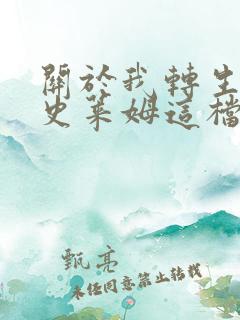 關於我轉生
史萊姆這檔
甄亮
未經同意禁止轉載